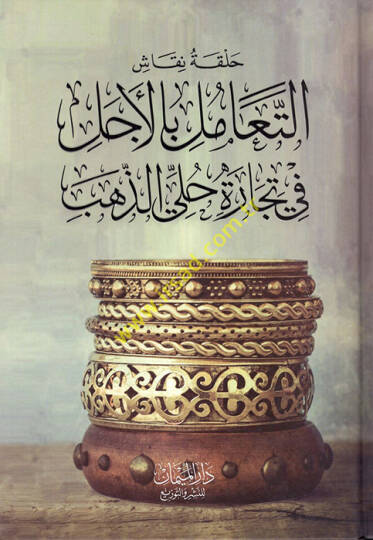 حَلْقَةُ نِقَاش
التَّعَامُل بِالأَجَل
فِي تِجَارَةِ حُلِيِّ الذَّهَب
www.irsad.com.tr
دَارُ المَيْمَان
لِلنَّشْرِ وَالتَّوْزِيع